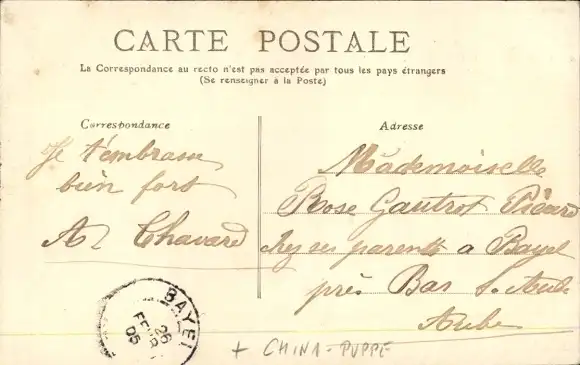 CARTE POSTALE
La Correspondance au recto n'est pas acceptée par tous les pays étrangers
(Se renseigner à la Poste)
Correspondance
Je t'embrasse
bien fort
A Chavard
Adresse
Mademoiselle
Rose Gautrot Picard
chez ses parents a Bayel
près Bar s. Aube
Aube
BAYEL
26
FEVR
05
+ CHINA-PUPPE